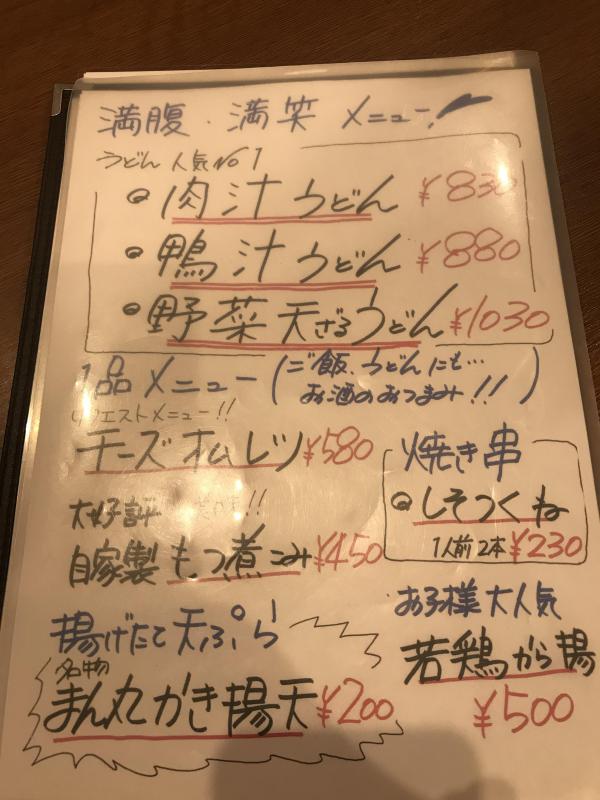 満腹・満笑 メニュー!
うどん 人気No1
肉汁うどん ¥830
鴨汁うどん ¥880
野菜天ざるうどん ¥1030
1品メニュー(ご飯、うどんにも…
お酒のおつまみ!!)
リクエストメニュー!!
チーズオムレツ ¥580
大好評 !!
自家製もつ煮こみ ¥450
焼き串
しそつくね
1人前2本 ¥230
揚げたて天ぷら
名物
まん丸かき揚天 ¥200
お子様大人気
若鶏から揚
¥500